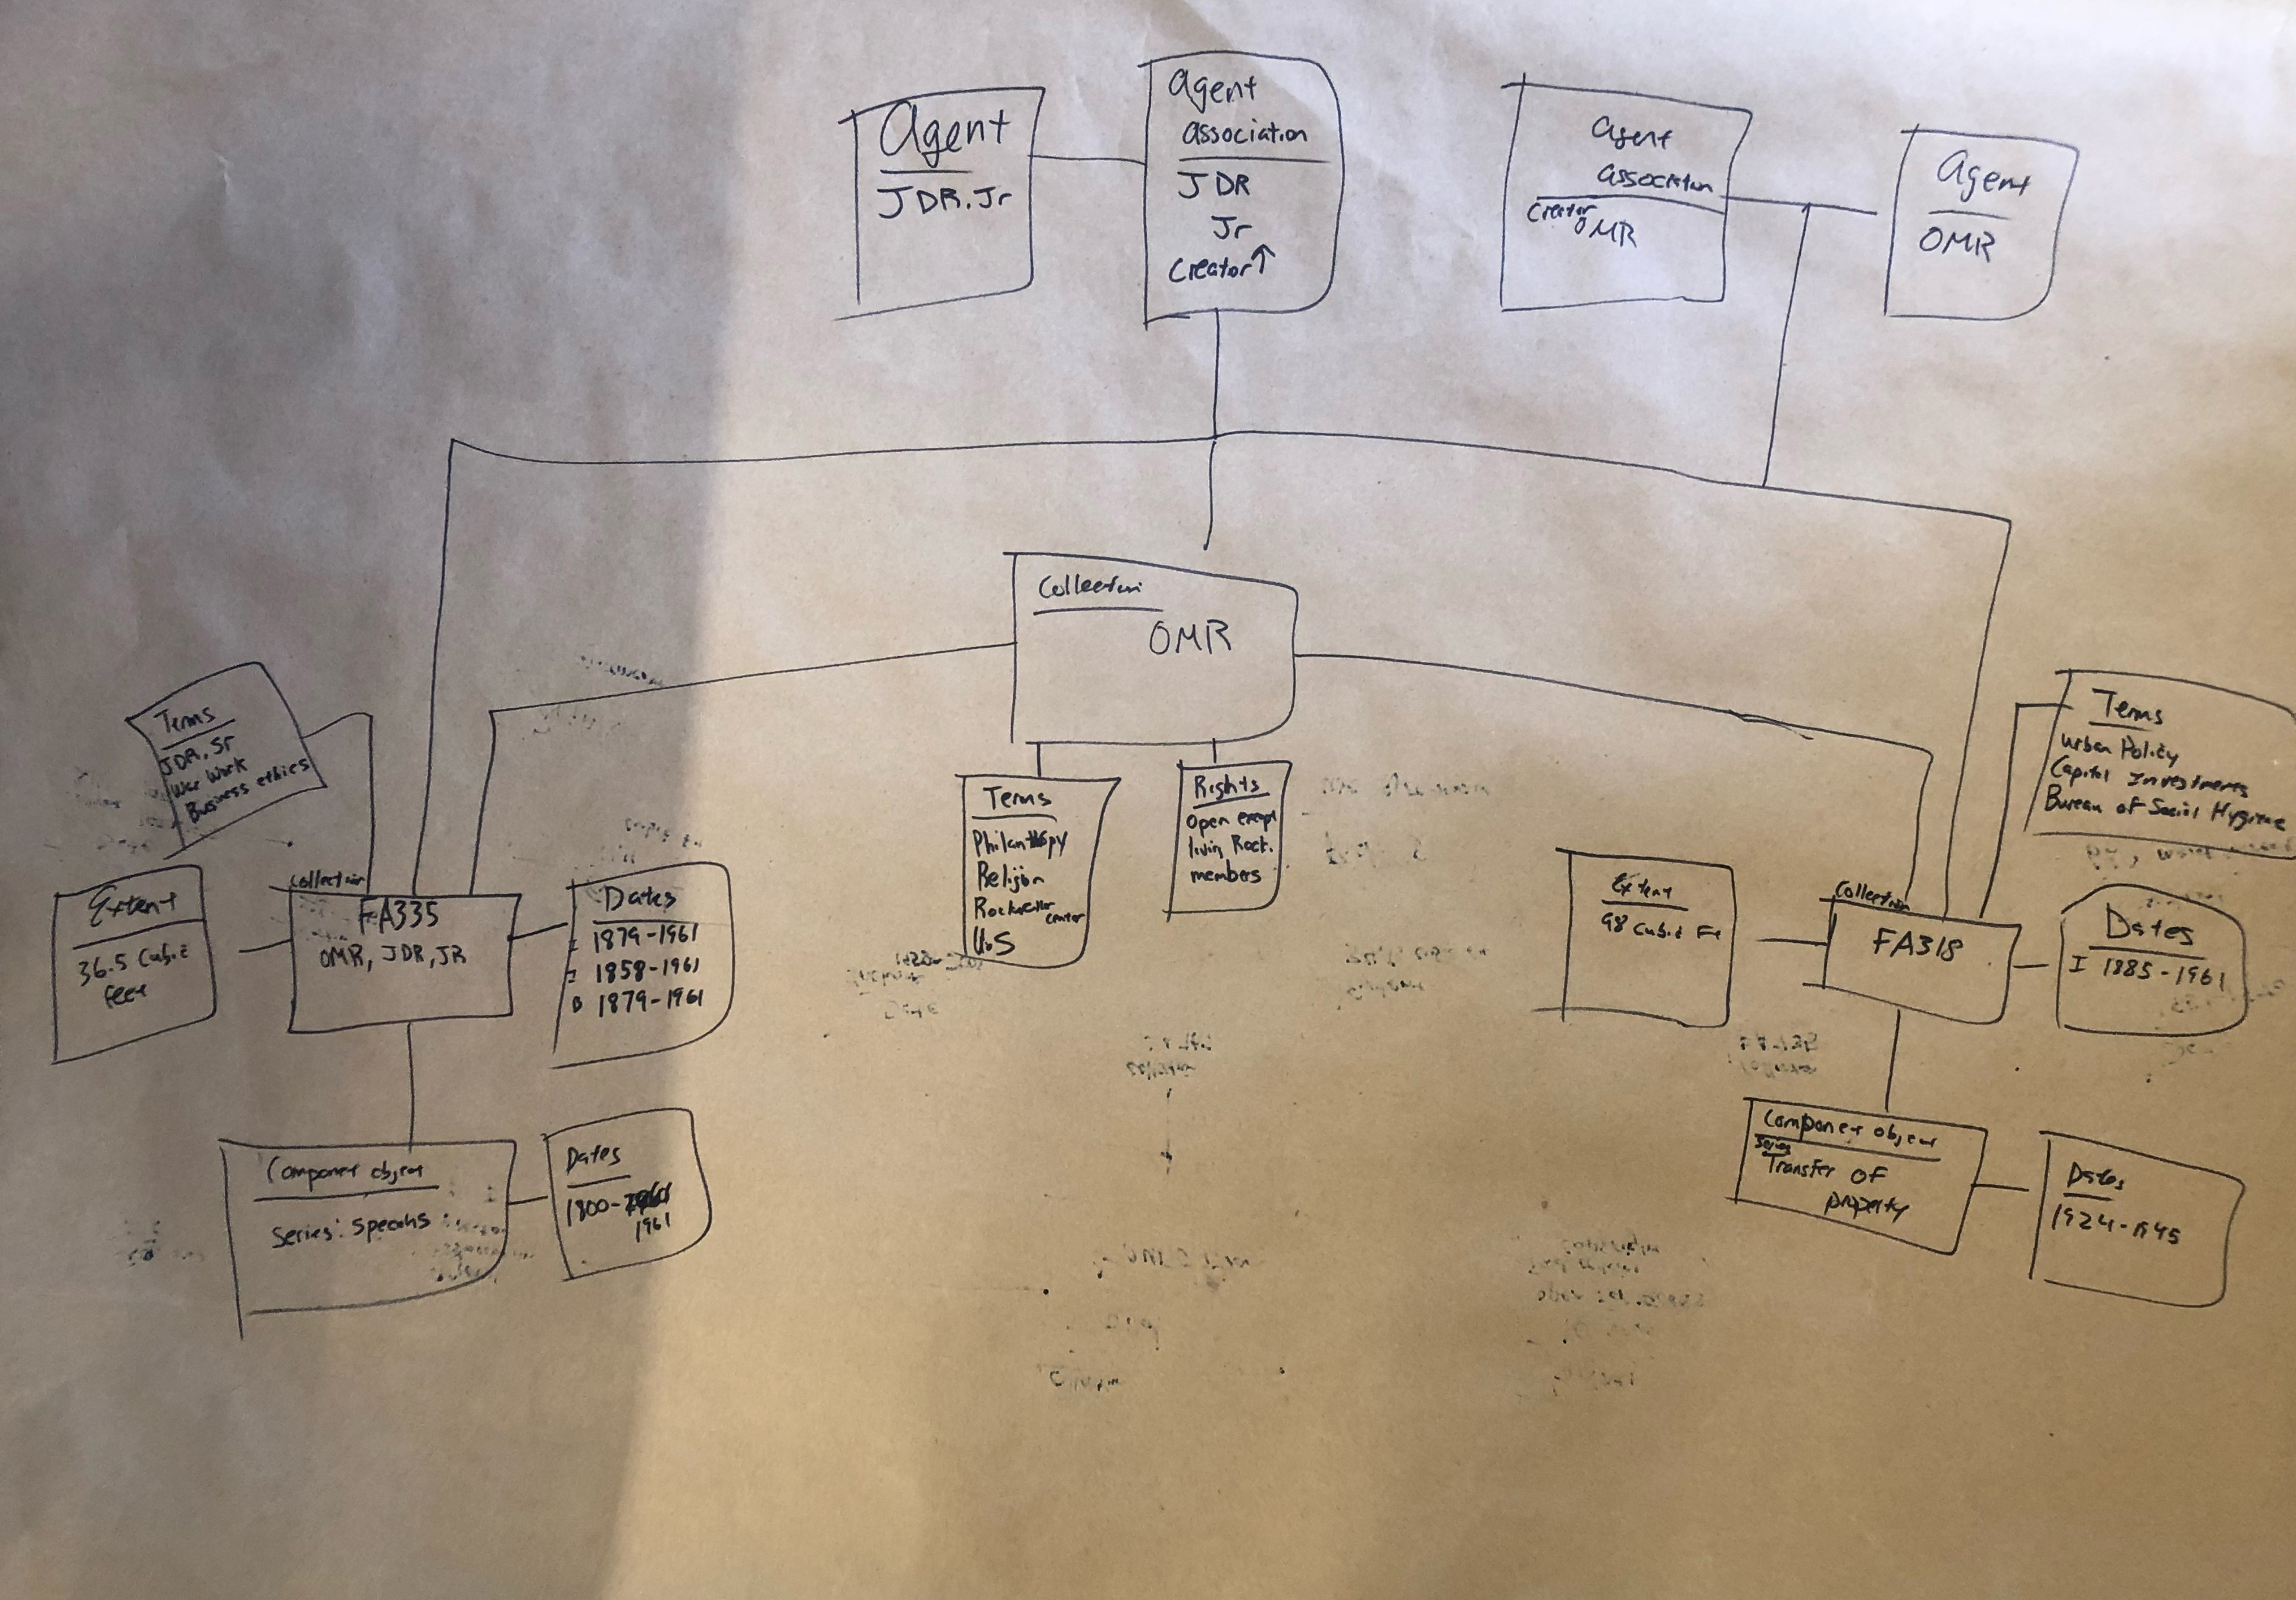 Agent
JDR, Jr
Agent
Association
JDR
Jr
Creator ↑
Agent
Association
Creator
OMR
Agent
OMR
Collection
OMR
Terms
Philanthropy
Religion
Rockefeller
center
Rights
Open except
living Rock.
members
Terms
JDR, Sr
War Work
Business ethics
Extent
36.5 Cubic
feet
Collection
FA335
OMR, JDR, JR
Dates
I 1879-1961
I 1858-1961
B 1879-1961
Component object
Series: Speeches
Dates
1800-
1961
Terms
Urban Policy
Capital Investments
Bureau of Social Hygiene
Extent
98 Cubic Ft
Collection
FA318
Dates
I 1885-1961
Component object
Series
Transfer of
property
Dates
1924-1945